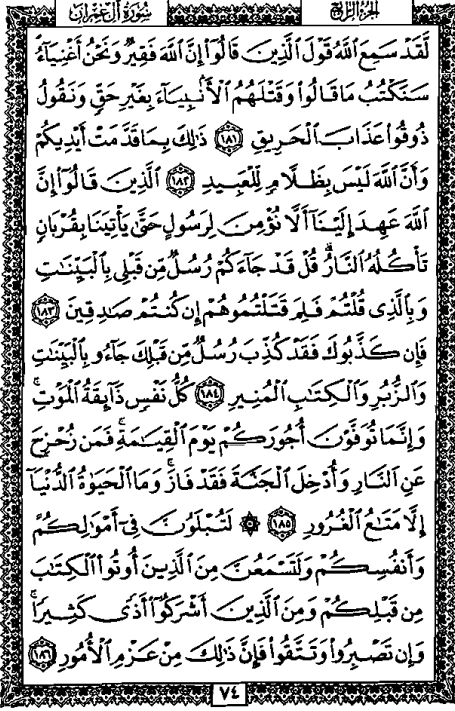 سُورَةُ آلِ عِمْرَانَ
الجُزْءُ الرَّابِعُ
لَّقَدْ سَمِعَ ٱللَّهُ قَوْلَ ٱلَّذِينَ قَالُوٓا۟ إِنَّ ٱللَّهَ فَقِيرٌ وَنَحْنُ أَغْنِيَآءُ
سَنَكْتُبُ مَا قَالُوا۟ وَقَتْلَهُمُ ٱلْأَنۢبِيَآءَ بِغَيْرِ حَقٍّ وَنَقُولُ
ذُوقُوا۟ عَذَابَ ٱلْحَرِيقِ ١٨١ ذَٰلِكَ بِمَا قَدَّمَتْ أَيْدِيكُمْ
وَأَنَّ ٱللَّهَ لَيْسَ بِظَلَّامٍ لِّلْعَبِيدِ ١٨٢ ٱلَّذِينَ قَالُوٓا۟ إِنَّ
ٱللَّهَ عَهِدَ إِلَيْنَآ أَلَّا نُؤْمِنَ لِرَسُولٍ حَتَّىٰ يَأْتِيَنَا بِقُرْبَانٍ
تَأْكُلُهُ ٱلنَّارُ ۗ قُلْ قَدْ جَآءَكُمْ رُسُلٌ مِّن قَبْلِى بِٱلْبَيِّنَٰتِ
وَبِٱلَّذِى قُلْتُمْ فَلِمَ قَتَلْتُمُوهُمْ إِن كُنتُمْ صَٰدِقِينَ ١٨٣
فَإِن كَذَّبُوكَ فَقَدْ كُذِّبَ رُسُلٌ مِّن قَبْلِكَ جَآءُو بِٱلْبَيِّنَٰتِ
وَٱلزُّبُرِ وَٱلْكِتَٰبِ ٱلْمُنِيرِ ١٨٤ كُلُّ نَفْسٍ ذَآئِقَةُ ٱلْمَوْتِ ۗ
وَإِنَّمَا تُوَفَّوْنَ أُجُورَكُمْ يَوْمَ ٱلْقِيَٰمَةِ ۖ فَمَن زُحْزِحَ
عَنِ ٱلنَّارِ وَأُدْخِلَ ٱلْجَنَّةَ فَقَدْ فَازَ ۗ وَمَا ٱلْحَيَوٰةُ ٱلدُّنْيَآ
إِلَّا مَتَٰعُ ٱلْغُرُورِ ١٨٥ ۞ لَتُبْلَوُنَّ فِىٓ أَمْوَٰلِكُمْ
وَأَنفُسِكُمْ وَلَتَسْمَعُنَّ مِنَ ٱلَّذِينَ أُوتُوا۟ ٱلْكِتَٰبَ
مِن قَبْلِكُمْ وَمِنَ ٱلَّذِينَ أَشْرَكُوٓا۟ أَذًى كَثِيرًا ۚ
وَإِن تَصْبِرُوا۟ وَتَتَّقُوا۟ فَإِنَّ ذَٰلِكَ مِنْ عَزْمِ ٱلْأُمُورِ ١٨٦
٧٤